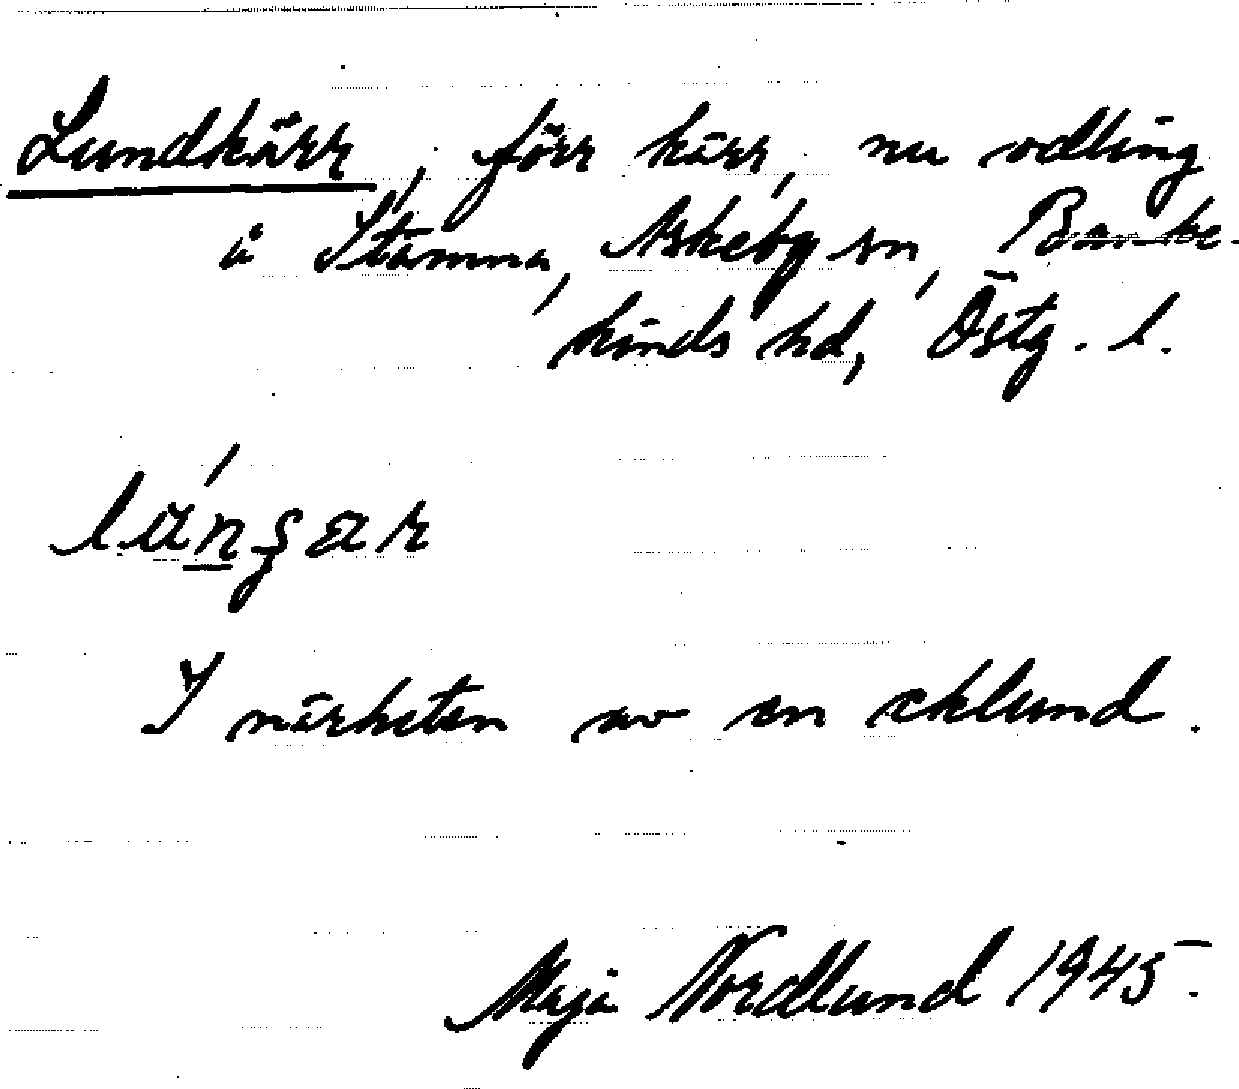 Lundkärr, förr kärr, nu odling
å Stämma, Askeby sn, Banke-
kinds hd, Östg. l.
I närheten av en eklund.
Maja Nordlund 1945.